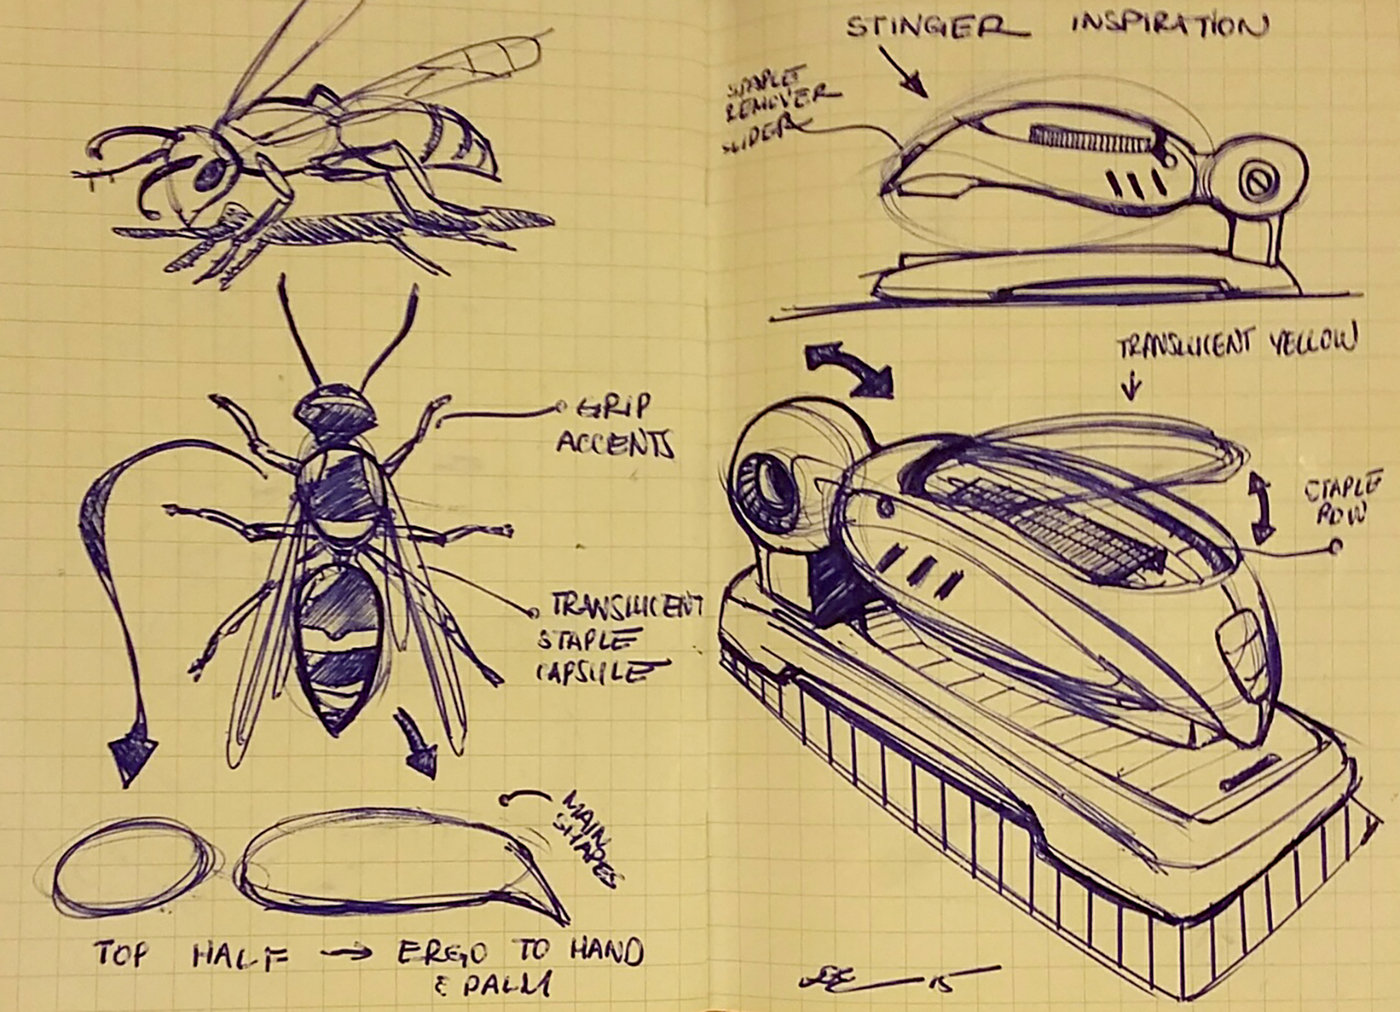 STINGER INSPIRATION
STAPLE
REMOVER
SLIDER
TRANSLUCENT YELLOW
GRIP
ACCENTS
STAPLE
ROW
TRANSLUCENT
STAPLE
CAPSULE
MAIN
SHAPES
TOP HALF → ERGO TO HAND
& PALM
15